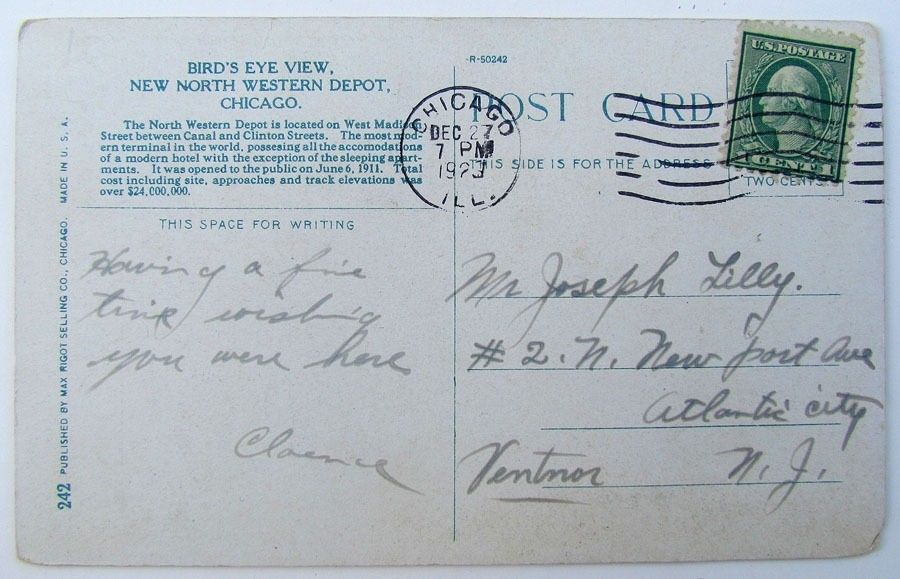 BIRD'S EYE VIEW,
NEW NORTH WESTERN DEPOT,
CHICAGO.
The North Western Depot is located on West Madison
Street between Canal and Clinton Streets. The most mod-
ern terminal in the world, possesing all the accomodations
of a modern hotel with the exception of the sleeping apart-
ments. It was opened to the public on June 6, 1911. Total
cost including site, approaches and track elevations was
over $24,000,000.
THIS SPACE FOR WRITING
Having a fine
time wishing
you were here
Clarence
242 PUBLISHED BY MAX RIGOT SELLING CO., CHICAGO. MADE IN U. S. A.
-R-50242
POST CARD
THIS SIDE IS FOR THE ADDRESS
CHICAGO
DEC 27
7 PM
1923
ILL.
U.S. POSTAGE
1 CENT 1
TWO CENTS
Mr Joseph Lilly.
# 2. N. New port Ave
Atlantic city
Ventnor N. J.